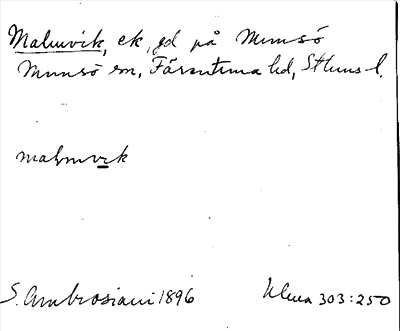 Malmvik, ek, gd på Munsö
Munsö sn, Färentuna hd, Sthlms l.
malmvik
S. Ambrosiani 1896
Ulua 303:250